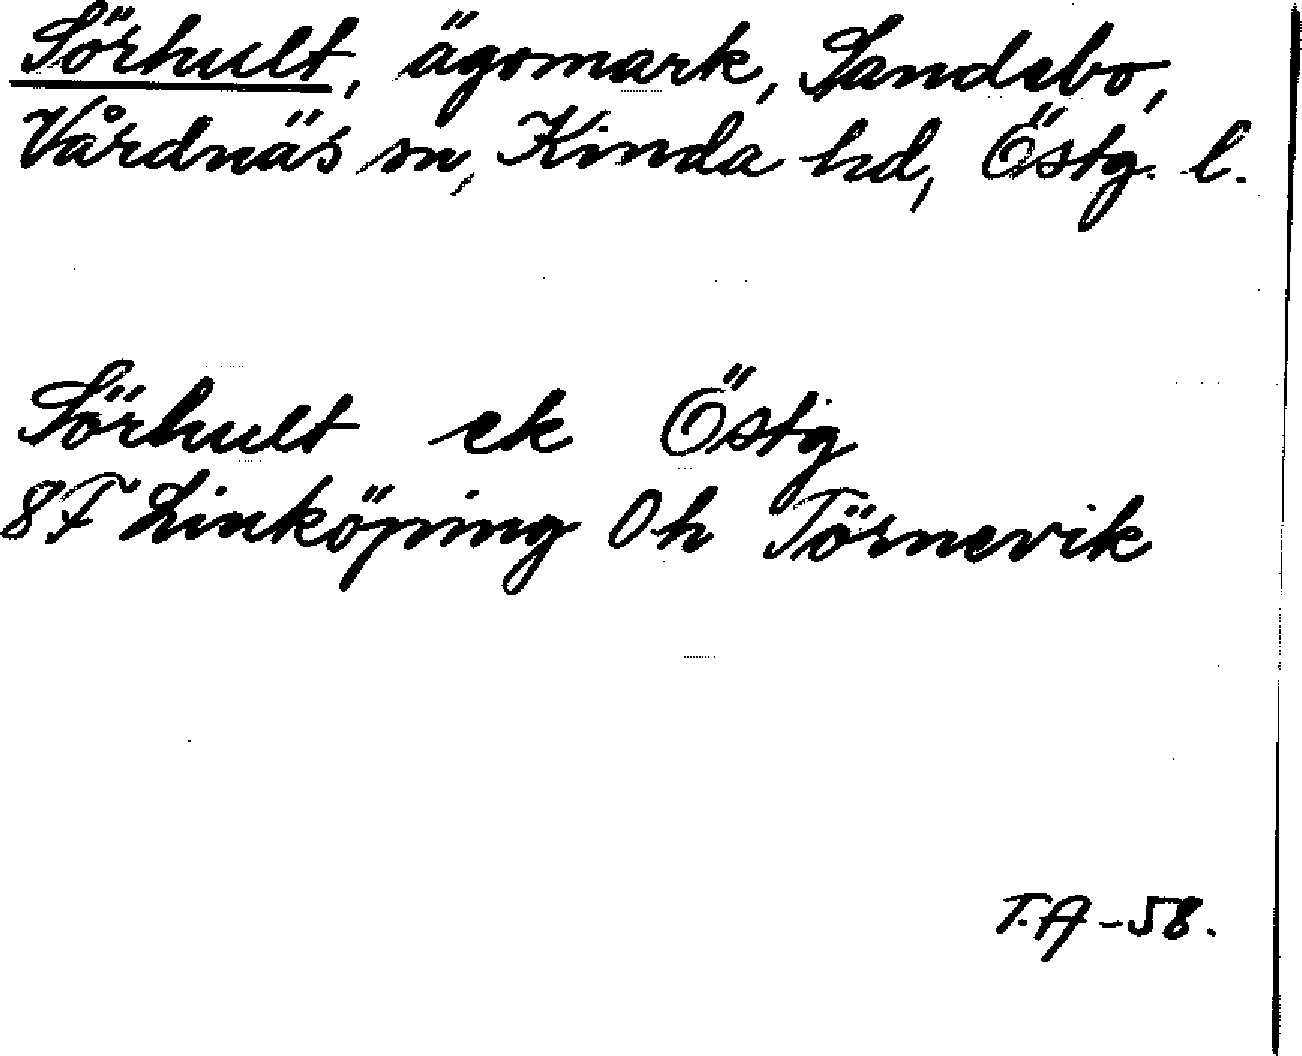 Sörhult, ägomark, Sandebo,
Vårdnäs sn, Kinda hd, Östg. l.
Sörhult ek Östg
8F Linköping 0h Törnevik
T.A -58.